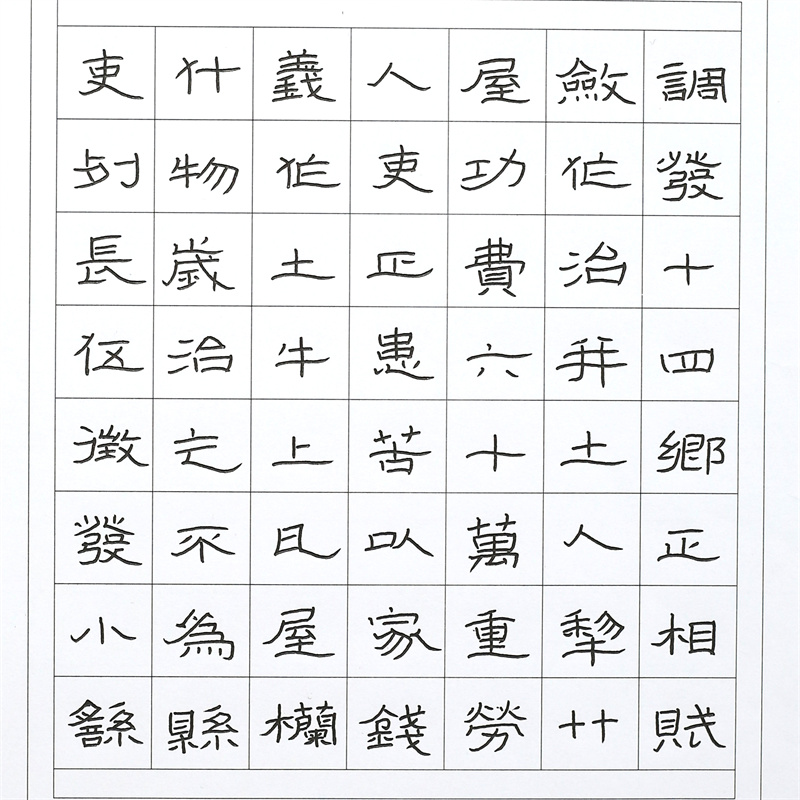 調發十四鄉正相賦
斂作治并土人犁艹
屋功費六十萬重勞
人吏正患苦以家錢
義作土牛上瓦屋欄
什物歲治之不為縣
吏列長伍徵發小繇